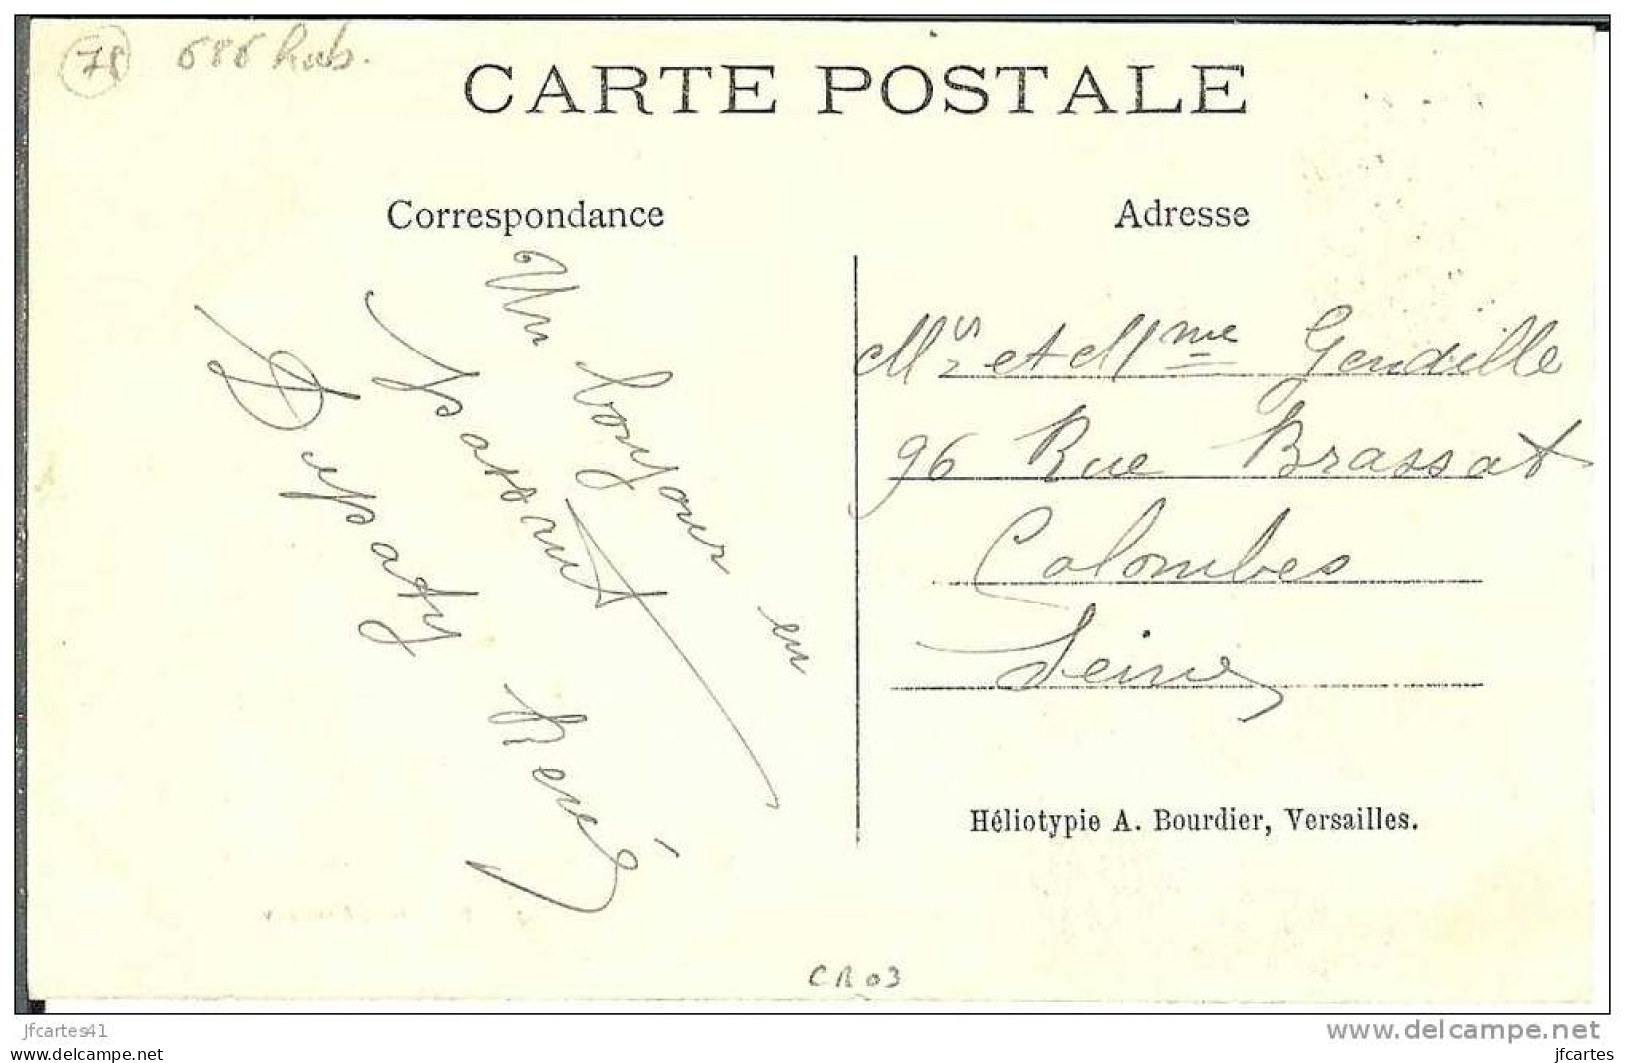 78
CARTE POSTALE
Correspondance
Un bonjour en
passant
Depaty René
Adresse
Mr et Mme Gendille
96 Rue Brassat
Colombes
Seine
Héliotypie A. Bourdier, Versailles.
CR 03
jfcartes41
www.delcampe.net
www.delcampe.net
jfcartes